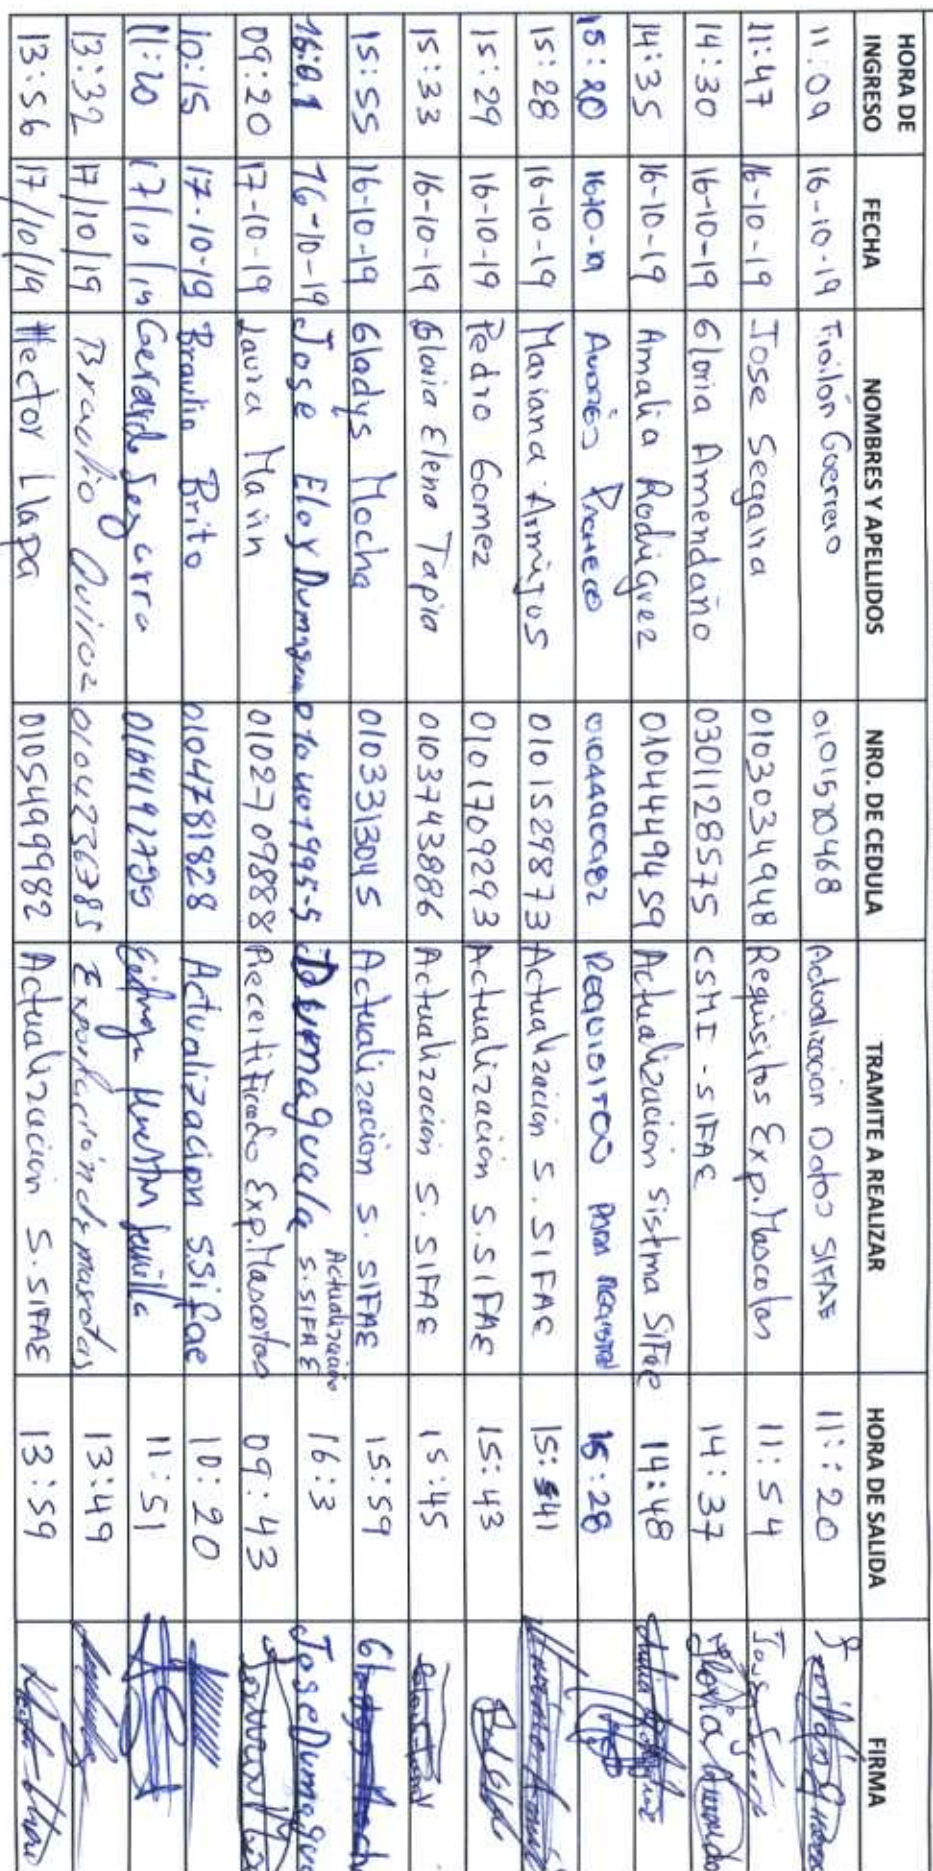 HORA DE INGRESO FECHA NOMBRES Y APELLIDOS NRO. DE CEDULA TRAMITE A REALIZAR HORA DE SALIDA FIRMA
11:09 16-10-19 Froilán Guerrero 0101520468 Actualizacion Datos SIFAE 11:20
11:47 16-10-19 Jose Segarra 0103034948 Requisitos Exp. Mascotas 11:54
14:30 16-10-19 Gloria Amendaño 0301128575 CSMI - SIFAE 14:37
14:35 16-10-19 Amalia Rodriguez 0104449459 Actualizacion sistema Sifae 14:48
15:20 16-10-19 Andrés Pacheco Requisitos para 15:28
15:28 16-10-19 Mariana Armijos 0101529873 Actualizacion S. SIFAE 15:41
15:29 16-10-19 Pedro Gomez 0101709293 Actualizacion S. SIFAE 15:43
15:33 16-10-19 Gloria Elena Tapia 0103743886 Actualizacion S. SIFAE 15:45
15:55 16-10-19 Gladys Mocha 0103313045 Actualizacion S. SIFAE 15:59
16:01 16-10-19 Jose Eloy Dumaguala Actualización S. SIFAE 16:3 Jose Dumagua
09:20 17-10-19 Laura Marin 0102709888 Recertificado Exp. Mascotas 09:43
10:15 17-10-19 Braulio Brito 0104781828 Actualizacion S.Sifae 10:20
11:20 17/10/19 Gerardo Segarra 11:51
13:32 17/10/19 Braulio Quiroz 0104236385 Exportación de mascotas 13:49
13:56 17/10/19 Hector Llapa 0105499982 Actualizacion S. SIFAE 13:59